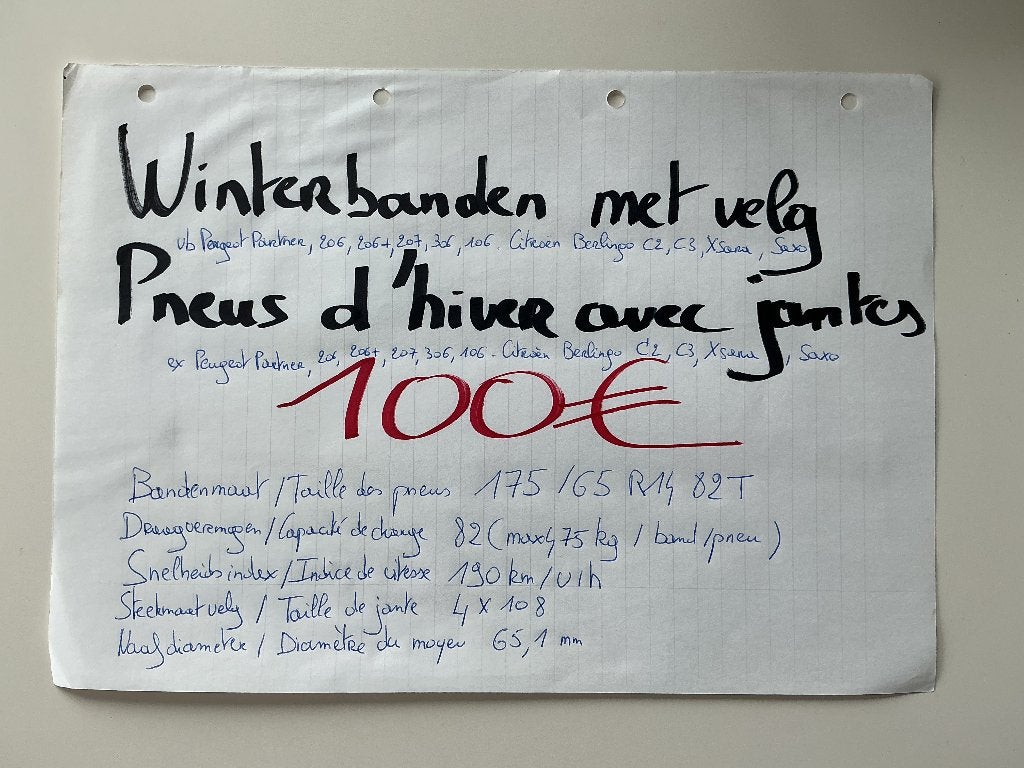 Winterbanden met velg
vb Peugeot Partner, 206, 206+, 207, 306, 106. Citroën Berlingo C2, C3, Xsara, Saxo
Pneus d'hiver avec jantes
ex Peugeot Partner, 206, 206+, 207, 306, 106. Citroën Berlingo C2, C3, Xsara, Saxo
100€
Bandenmaat/Taille des pneus 175/65 R14 82T
Draagvermogen/Capacité de charge 82 (max 475 kg / band/pneu)
Snelheidsindex/Indice de vitesse 190 km/u/h
Steekmaat velg / Taille de jante 4 x 108
Naafdiameter / Diamètre du moyeu 65,1 mm